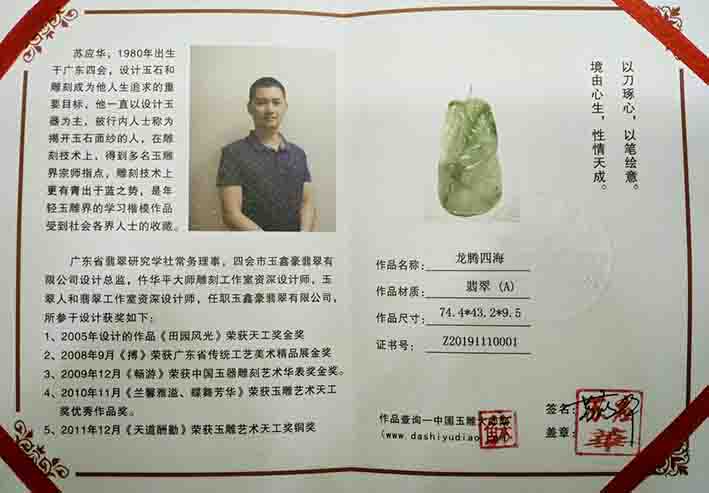 苏应华，1980年出生
于广东四会，设计玉石和
雕刻成为他人生追求的重
要目标，他一直以设计玉
器为主，被行内人士称为
揭开玉石面纱的人，在雕
刻技术上，得到多名玉雕
界宗师指点，雕刻技术上
更有青出于蓝之势，是年
轻玉雕界的学习楷模作品
受到社会各界人士的收藏。
广东省翡翠研究学社常务理事，四会市玉鑫豪翡翠有
限公司设计总监，仵华平大师雕刻工作室资深设计师，玉
翠人和翡翠工作室资深设计师，任职玉鑫豪翡翠有限公司，
所参于设计获奖如下：
1、2005年设计的作品《田园风光》荣获天工奖金奖
2、2008年9月《搏》荣获广东省传统工艺美术精品展金奖
3、2009年12月《畅游》荣获中国玉器雕刻艺术华表奖金奖。
4、2010年11月《兰馨雅溢、蝶舞芳华》荣获玉雕艺术天工
奖优秀作品奖。
5、2011年12月《天道酬勤》荣获玉雕艺术天工奖铜奖
以刀琢心，以笔绘意。
境由心生，性情天成。
作品名称：龙腾四海
作品材质：翡翠 (A)
作品尺寸：74.4*43.2*9.5
证书号：Z20191110001
作品查询—中国玉雕大
(www.dashiyudiao
签名：
盖章：